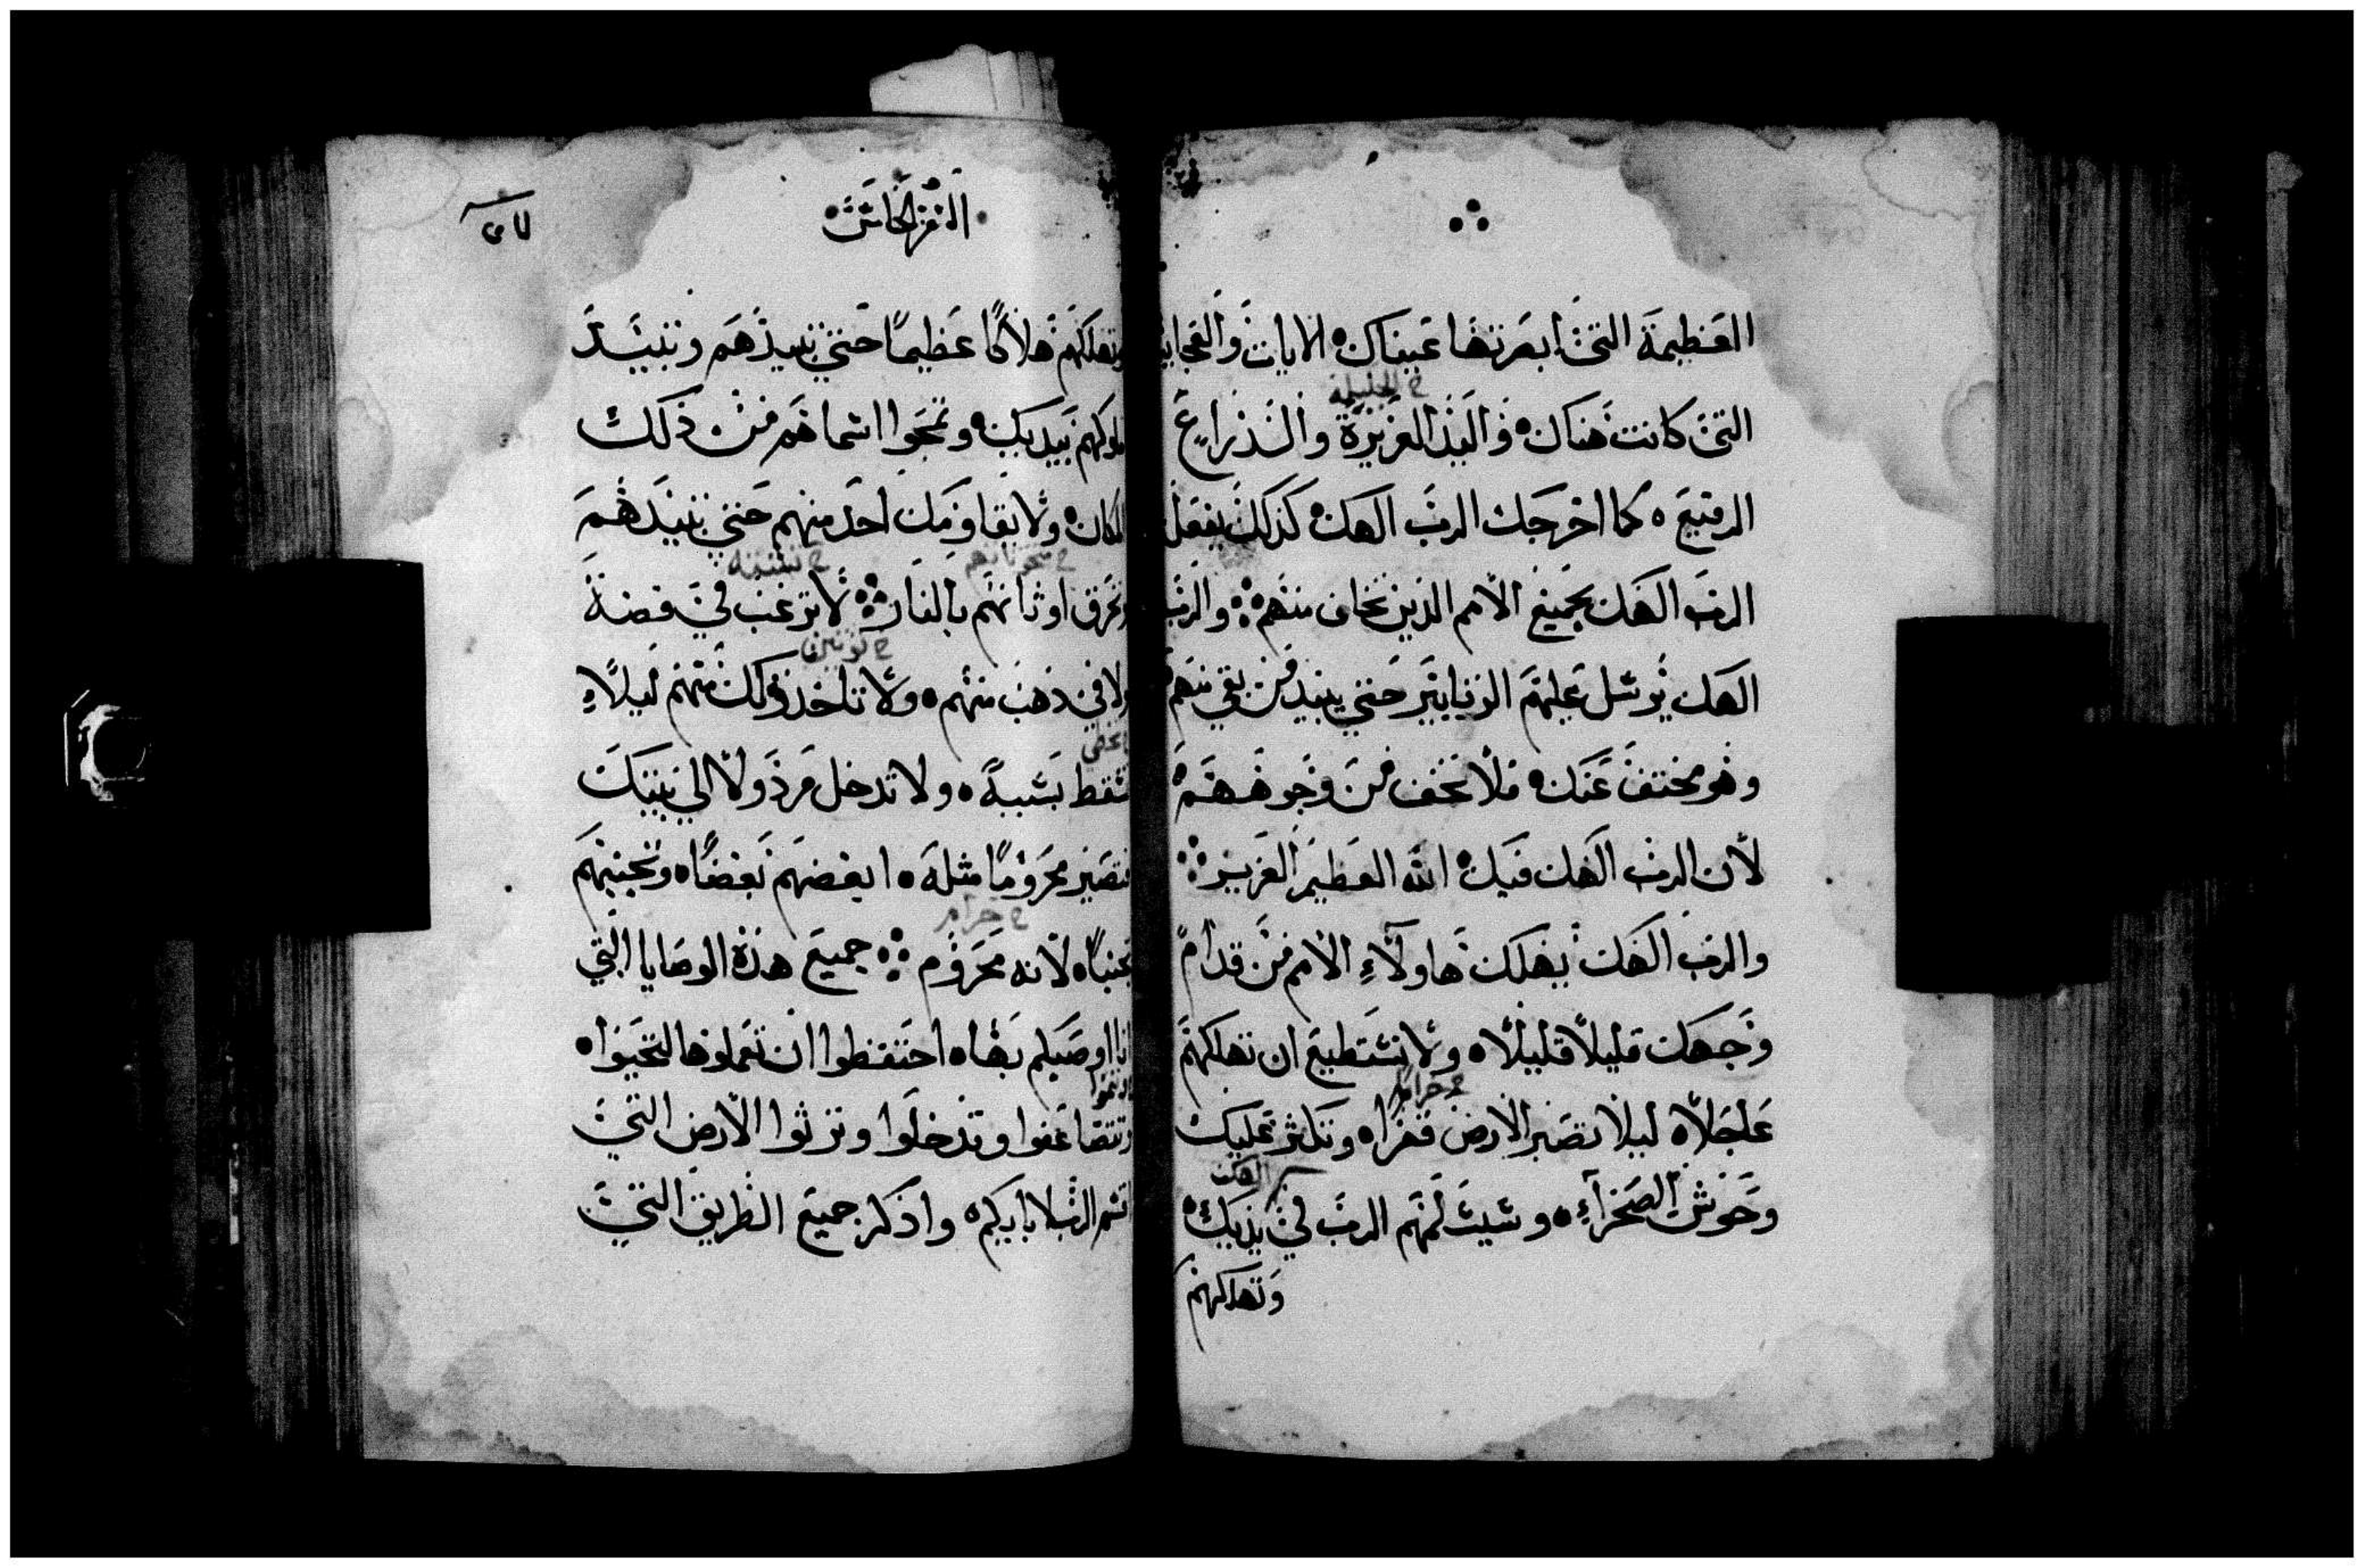 العظيمة التي ابصرتها عيناك الايات والعجايب
ح الجليلة
التي كانت هناك واليد العزيزة والذراع
الرفيع كما اخرجك الرب الهك كذلك يفعل
الرب الهك بجميع الأمم الذين تخاف منهم والرب
الهك يرسل عليهم الزنابير حتي يبيد من بقي منهم
وهو مختف عنك فلا تخف من وجوههم
لأن الرب الهك فيك الله العظيم العزيز
والرب الهك يهلك هاولآء الأمم من قدام
وجهك قليلاً قليلاً ولا تستطيع ان تهلكهم
عاجلاً ليلا تصير الارض قفراه وتكثر عليك
وحوش الصحرآء وسيسلمهم الرب في يديك
الهك
وتهلكهم
السفر الخامس
وتهلكهم هلاكًا عظيمًا حتي تبيدهم وتبيد
ملوكهم بيديك وتمحوا اسماهم من ذلك
المكان ولا يقاومك احد منهم حتي تبيدهم
ح منحوتاتهم
وتحرق اوثانهم بالنار لا ترغب في فضة
ولا في ذهب منهم ولا تاخذ ذلك منهم ليلاً
تسقط بسببه ولا تدخل مرذولاً الي بيتك
فتصير محرومًا مثله ابغضهم بغضًا وتجنبهم
ح حرام
تجنبًا لأنه محروم جميع هذه الوصايا التي
انا اوصيكم بها احتفظوا ان تعملوها لتحيوا
وتتضاعفوا وتدخلوا وترثوا الارض التي
اقسم الرب لابايكم واذكر جميع الطريق التي